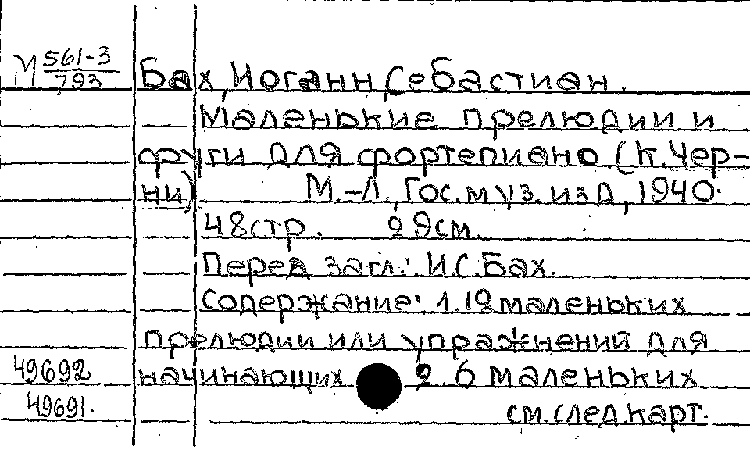 М 561-3/793
Бах, Иоганн Себастиан.
Маленькие прелюдии и
фуги для фортепиано (К. Чер-
ни) М.-Л., Гос. муз. изд, 1940.
48стр. 29см.
Перед загл.: И.С. Бах.
Содержание: 1. 12 маленьких
прелюдии или упражнений для
49692 начинающих 2. 6 маленьких
49691. см. след. карт.